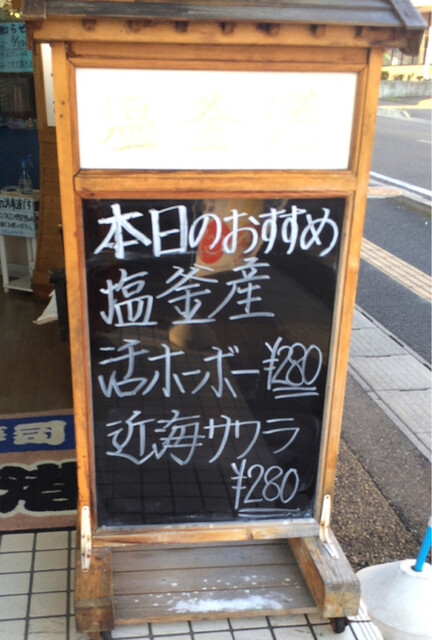 塩釜港
本日のおすすめ
塩釜産
活ホーボー ¥280
近海サワラ
¥280
寿司
港